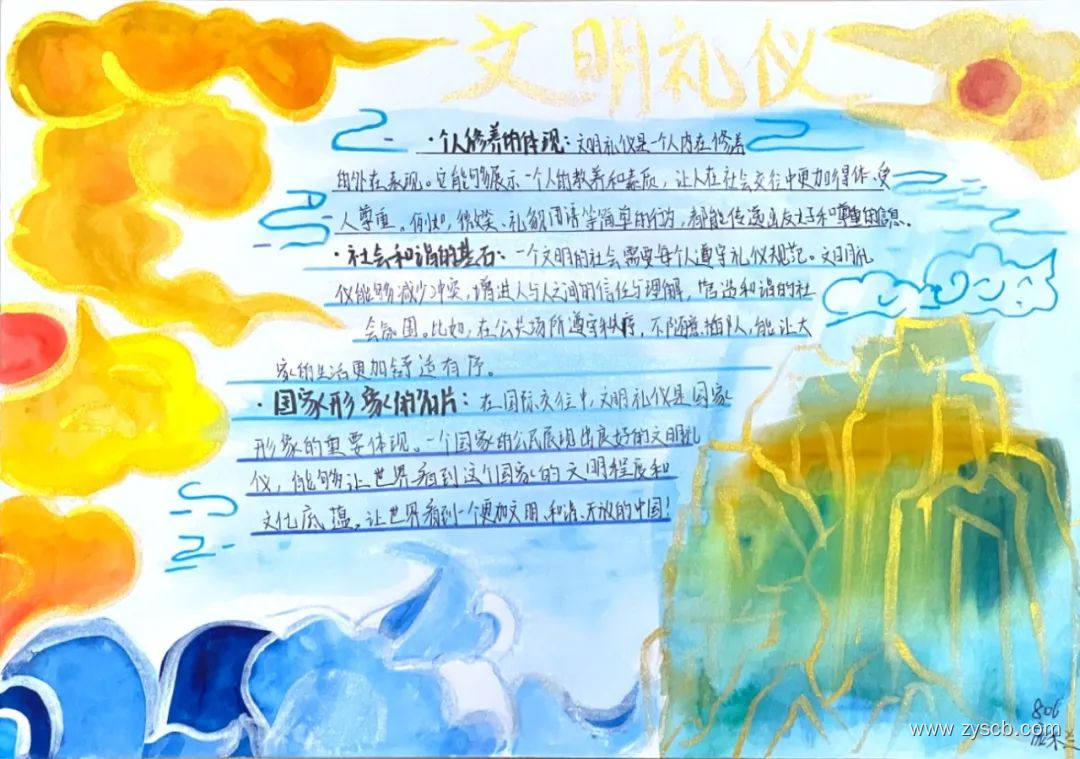 文明礼仪
·个人修养的体现：文明礼仪是一个人内在修养
的外在表现。它能够展示一个人的教养和素质，让人在社会交往中更加得体、受
人尊重。例如，微笑、礼貌用语等简单的行为，都能传递出友好和尊重的信息。
·社会和谐的基石：一个文明的社会需要每个人遵守礼仪规范。文明礼
仪能够减少冲突，增进人与人之间的信任与理解，营造和谐的社
会氛围。比如，在公共场所遵守秩序，不随意插队，能让大
家的生活更加舒适有序。
·国家形象的名片：在国际交往中，文明礼仪是国家
形象的重要体现。一个国家的公民展现出良好的文明礼
仪，能够让世界看到这个国家的文明程度和
文化底蕴，让世界看到一个更加文明、和谐、开放的中国！
806
www.zyscb.com